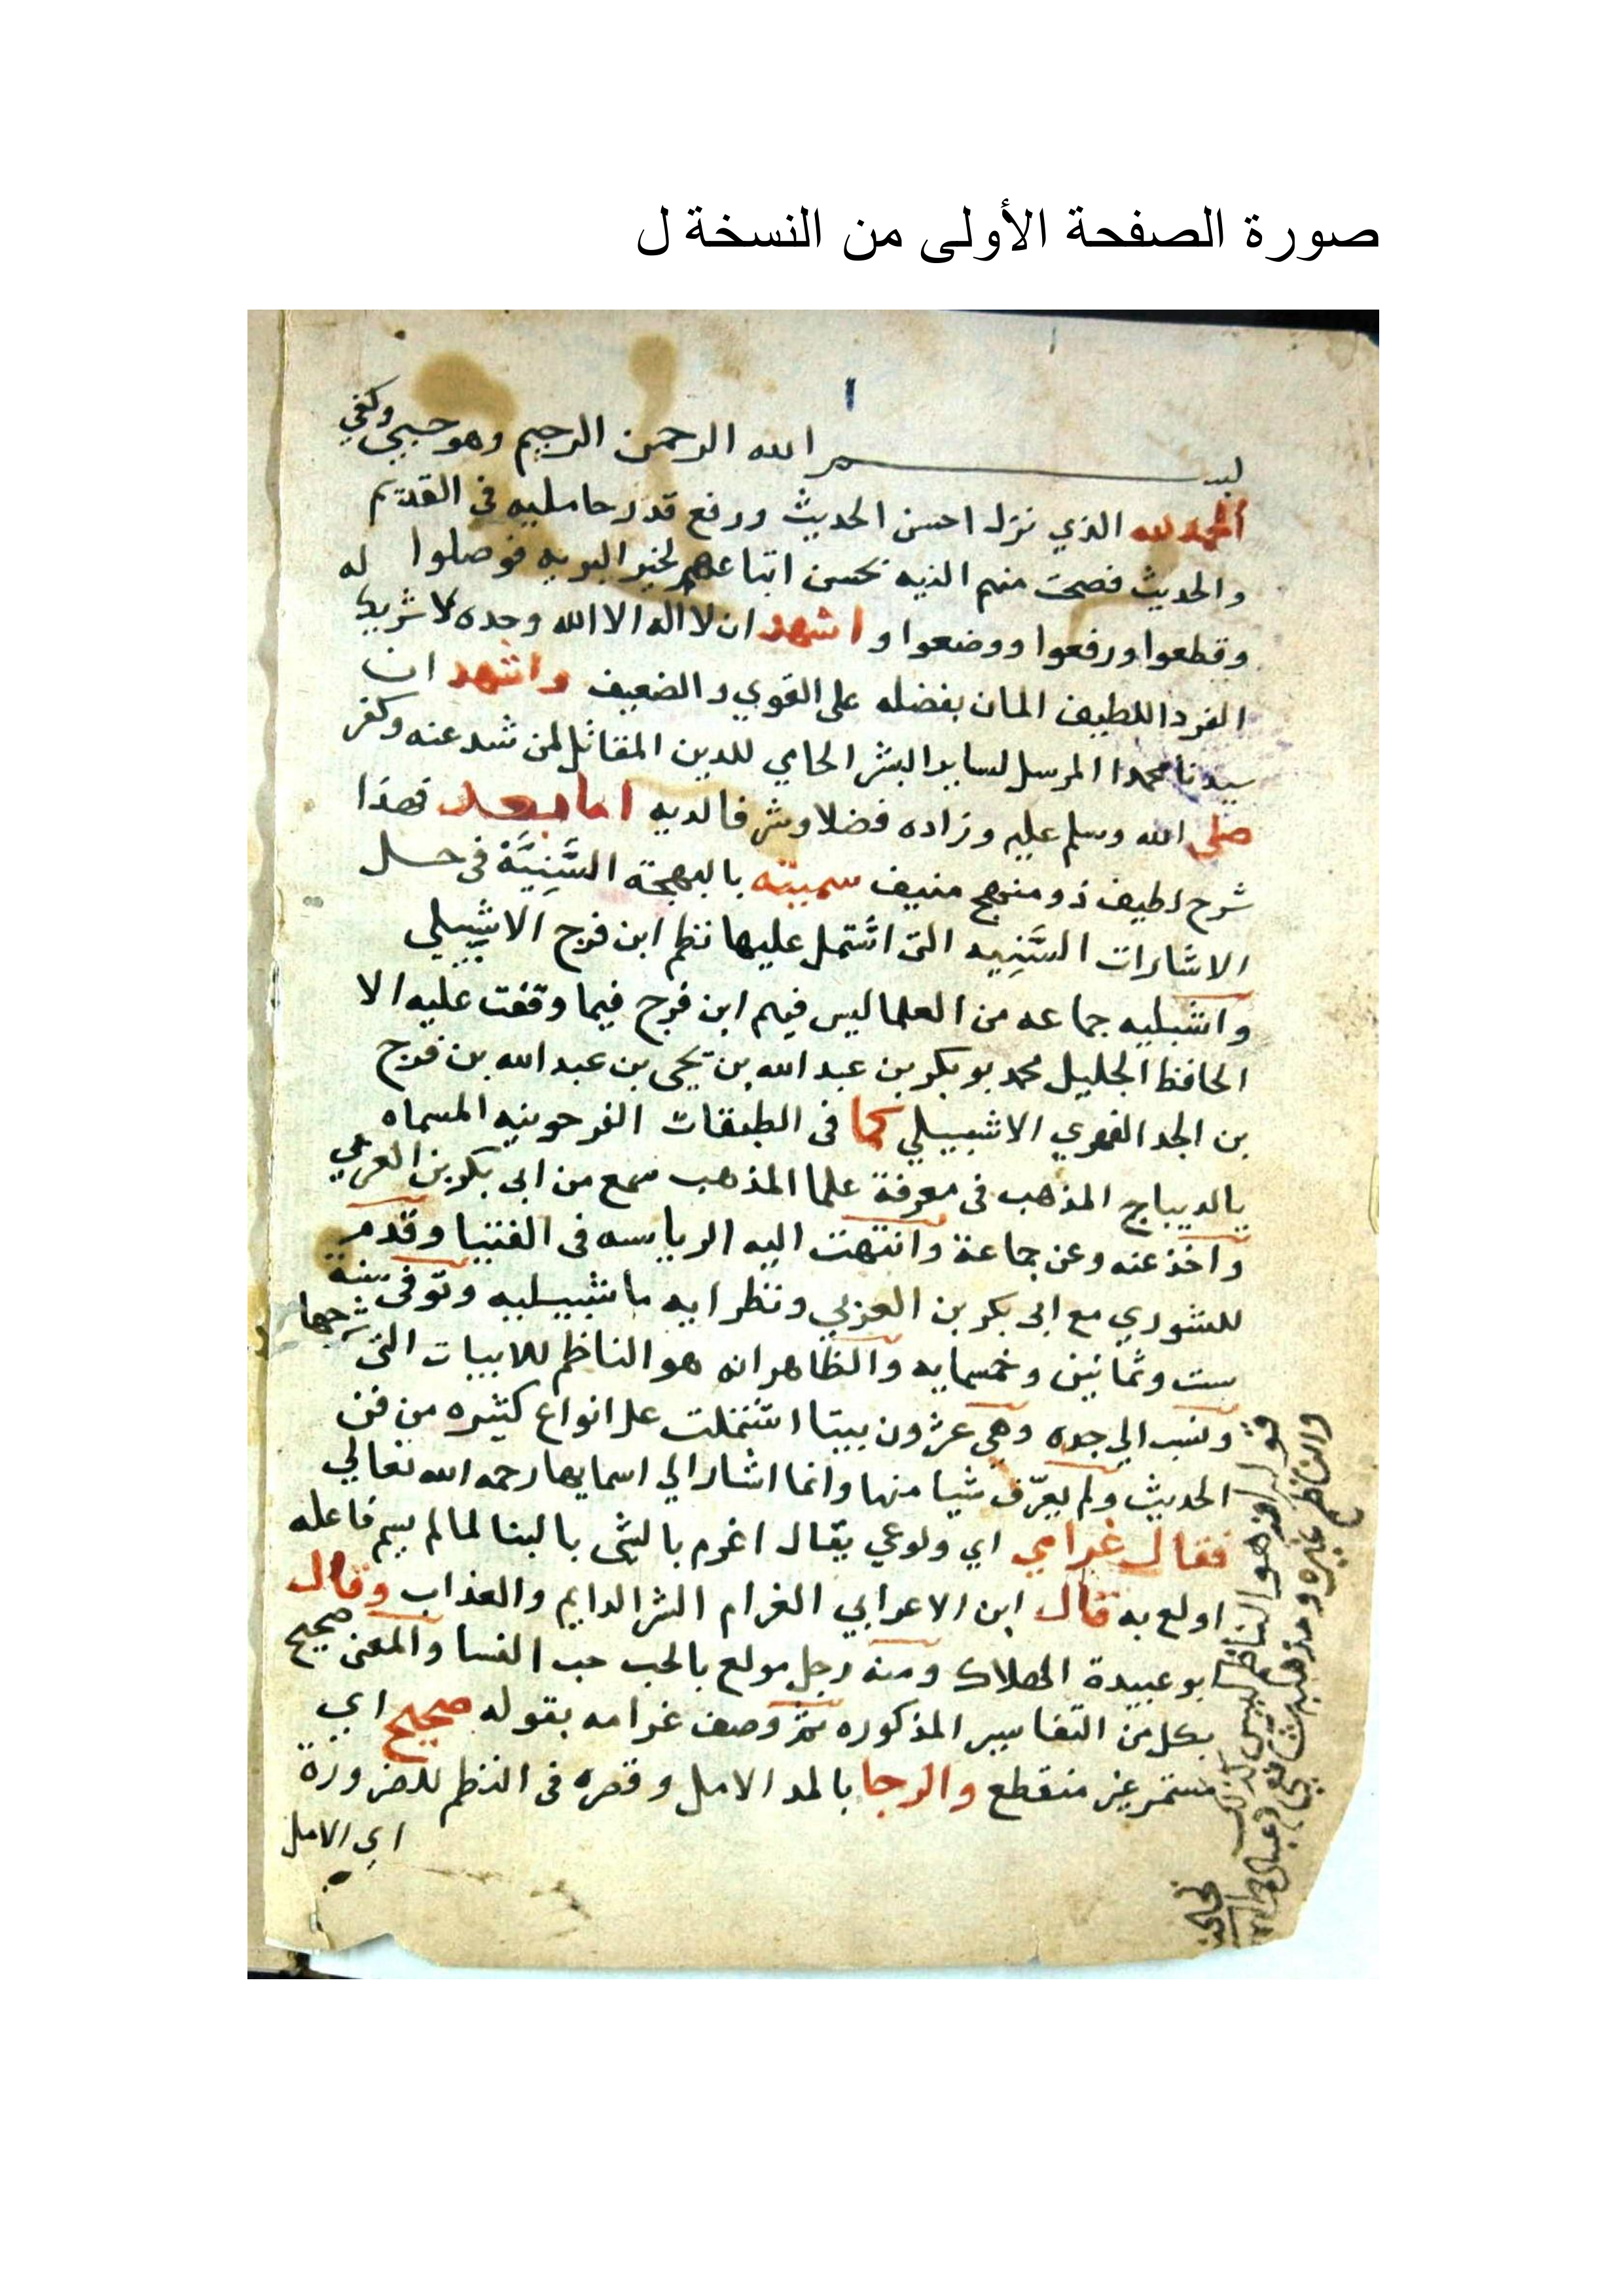 صورة الصفحة الأولى من النسخة ل
١
بسم الله الرحمن الرحيم وهو حسبي وكفي
الحمد لله الذي نزل احسن الحديث ورفع قدر حامليه في القديم
والحديث فصحت منهم النيه بحسن اتباعهم لخير البريه فوصلوا
وقطعوا ورفعوا ووضعوا واشهد ان لا اله الا الله وحده لا شريك له
الفرد اللطيف المان بفضله على القوي والضعيف واشهد ان
سيدنا محمدا المرسل لساير البشر الحامي للدين المقاتل لمن شد عنه وكفر
صلى الله وسلم عليه وزاده فضلا وشرفا لديه اما بعد فهذا
شرح لطيف ذو منهج منيف سميته بالبهجة السَّنِيَّة في حل
الاشارات السَّنِيه التي اشتمل عليها نظم ابن فرج الاشبيلي
واشبليه جماعه من العلما ليس فيهم ابن فرج فيما وقفت عليه الا
الحافظ الجليل محمد بو بكر بن عبد الله بن يحيى بن عبد الله بن فرج
بن الجد الفهري الاشبيلي كما في الطبقات الفرحونيه المسماه
بالديباج المذهب في معرفة علما المذهب سمع من ابي بكر بن العربي
واخذ عنه وعن جماعة وانتهت اليه الرياسه في الفتيا وقدم
للشوري مع ابي بكر بن العربي ونظرايه باشبيليه وتوفي سنة
ست وثمانين وخمسمايه والظاهر انه هو الناظم للابيات التي شرحها
ونسب الي جده وهي عشرون بيتا اشتملت على انواع كثيره من فن
الحديث ولم يعرّف شيا منها وانما اشار الي اسمايها رحمه الله تعالي
فقال غرامي اي ولوعي يقال اغرم بالشى بالبنا لما لم يسم فاعله
اولع به قال ابن الاعرابي الغرام الشر الدايم والعذاب وقال
ابو عبيدة الهلاك ومنه رجل مولع بالحب حب النسا والمعنى صحيح
بكل من التفاسير المذكوره ثم وصف غرامه بقوله صحيح اي
مستمر غير منقطع والرجا بالمد الامل وقصره في النظم للضرورة
اي الامل
قوله انه هو الناظم ليس كذلك
والناظم غيره ومذهبه شافعي